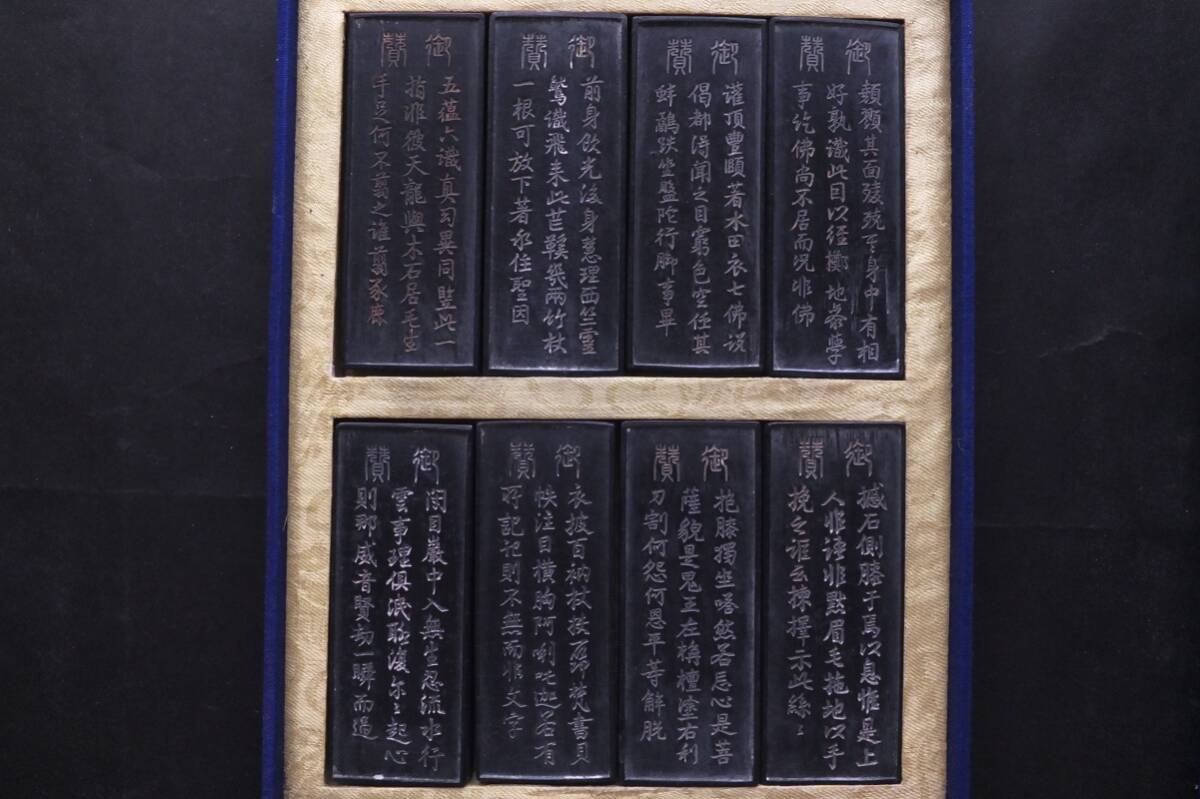 御贊
其面其身中有相
好孰識此因以擲地參學
事訖佛尚不居而況非佛
御贊
灌頂豐頤著水田衣七佛說
偈都得聞之目窮色空任其
蚌鷸趺坐盤陀行脚事畢
御贊
前身飲光後身慧理西竺靈
鷲識飛來此芒鞵幾兩竹杖
一根可放下著永住聖因
御贊
五蘊六識真異同豎此一
指非彼天龍與木石居毛生
手足何不翦之誰翦豕鹿
御贊
撼石側膝于焉以息惟是上
人非語非默眉毛拖地以手
挽之誰云揀擇示此絲〻
御贊
抱膝獨坐嗒然若忘心是菩
薩貌是鬼王左栴檀塗右利
刀割何怨何恩平等解脫
御贊
衣披百衲杖扶梵書貝
帙注目橫胸阿唎吒迦若有
所記記則不無而非文字
御贊
閉目巖中入無生忍流水行
雲事理俱泯聊復尔〻起心
則那威音賢劫一瞬而過